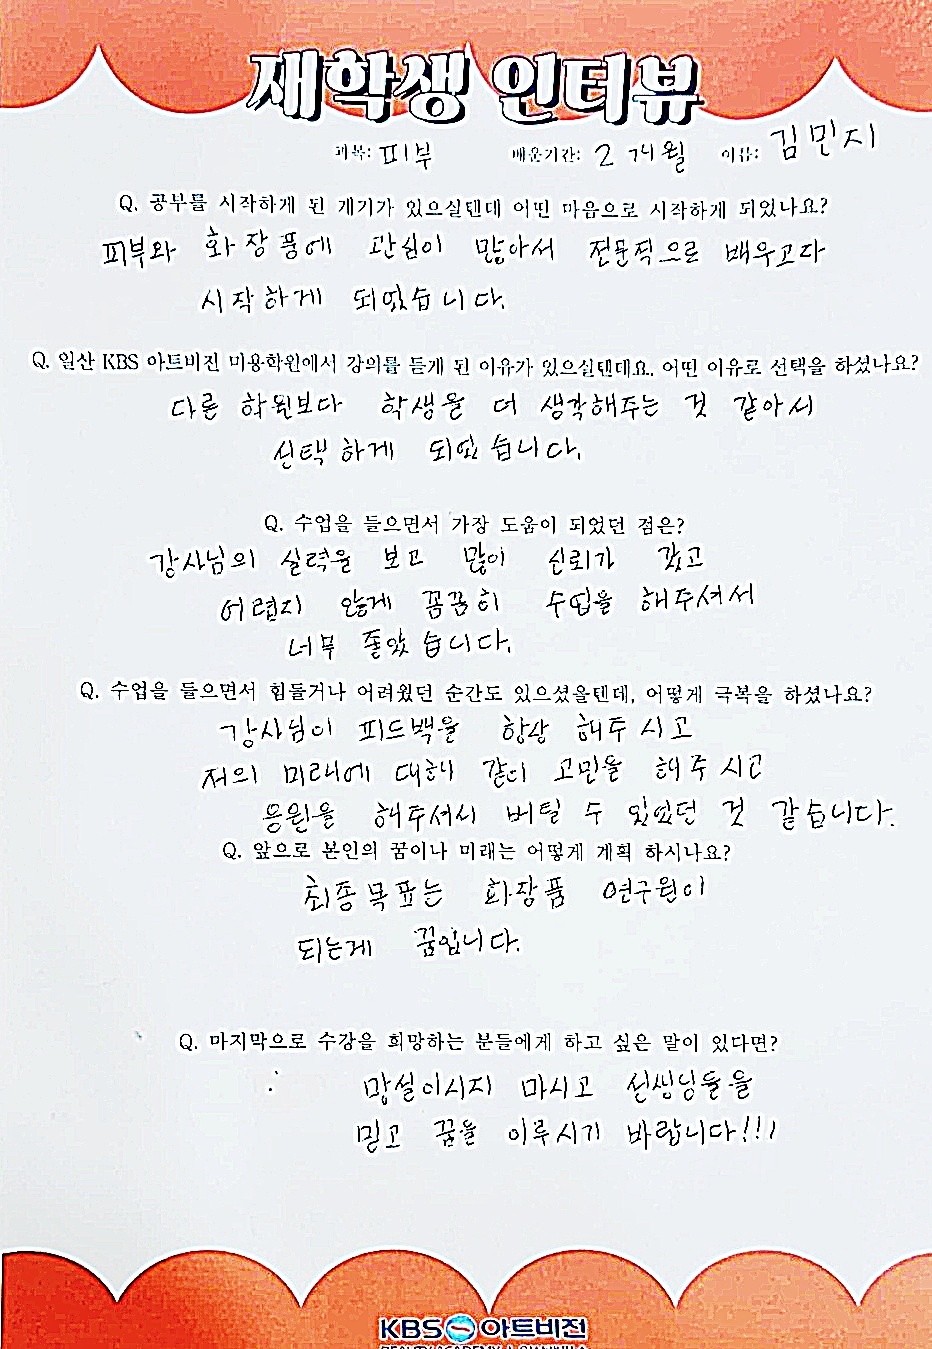 재학생 인터뷰
과목: 피부 배운기간: 2 개월 이름: 김민지
Q. 공부를 시작하게 된 계기가 있으실텐데 어떤 마음으로 시작하게 되었나요?
피부와 화장품에 관심이 많아서 전문적으로 배우고다
시작하게 되었습니다.
Q. 일산 KBS 아트비전 미용학원에서 강의를 듣게 된 이유가 있으실텐데요. 어떤 이유로 선택을 하셨나요?
다른 학원보다 학생을 더 생각해주는 것 같아서
선택하게 되었습니다.
Q. 수업을 들으면서 가장 도움이 되었던 점은?
강사님의 실력을 보고 많이 신뢰가 갔고
어렵지 않게 꼼꼼히 수업을 해주셔서
너무 좋았습니다.
Q. 수업을 들으면서 힘들거나 어려웠던 순간도 있으셨을텐데, 어떻게 극복을 하셨나요?
강사님이 피드백을 항상 해주시고
저의 미래에 대해 같이 고민을 해주시고
응원을 해주셔서 버틸 수 있었던 것 같습니다.
Q. 앞으로 본인의 꿈이나 미래는 어떻게 계획 하시나요?
최종목표는 화장품 연구원이
되는게 꿈입니다.
Q. 마지막으로 수강을 희망하는 분들에게 하고 싶은 말이 있다면?
망설이시지 마시고 선생님들을
믿고 꿈을 이루시기 바랍니다!!!
KBS 아트비전